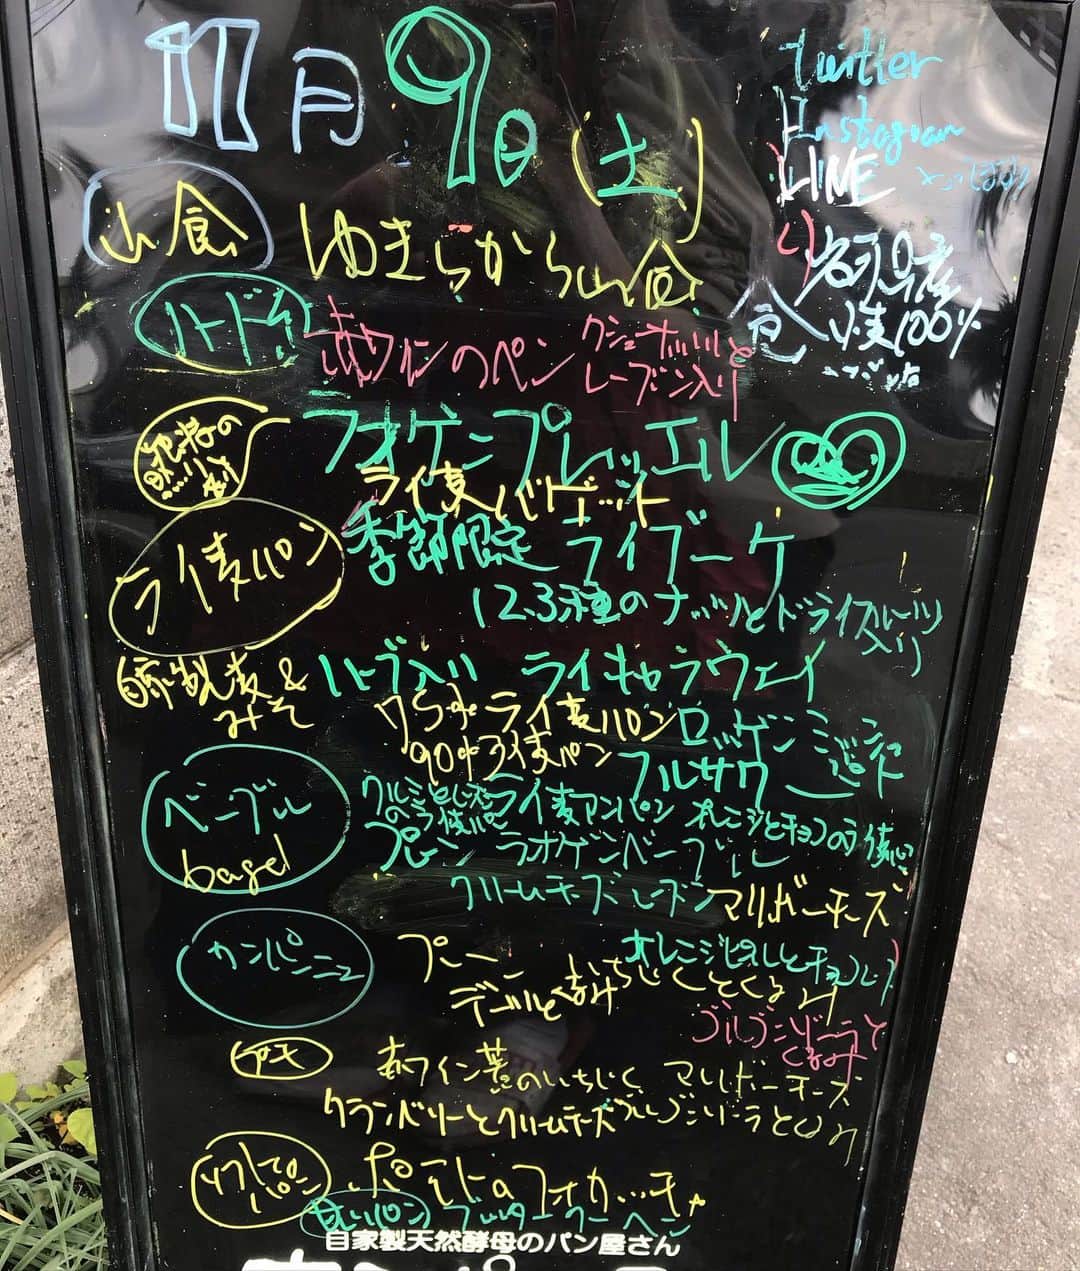 11月9日(土)
twitter
Instagram
LINE
山食
ゆきちから山食
小麦100%
ハード系
赤ワインのパン カシューナッツと
レーズン入り
ラオゲンプレッツェル
ライ麦バゲット
ライ麦パン
季節限定 ライブーケ
12.3種のナッツとドライフルーツ
入り
自家製麦&
みそ
ハーブ入り ライキャラウェイ
75%ライ麦パン ロッゲンミッシュ
90%ライ麦パン フルサワー
ベーグル
bagel
クルミとレーズン
のライ麦パン
ライ麦アンパン オレンジとチョコのライ麦パン
プレーン ラオゲンベーグル
クリームチーズレーズン マリボーチーズ
カンパーニュ
プレーン オレンジピールとチョコレート
いちじくとくるみ
ゴルゴンゾーラと
くるみ
プチ
赤ワイン煮のいちじく マリボーチーズ
クランベリーとクリームチーズ ゴルゴンゾーラとくるみ
ソフトな
パン
ポテトのフォカッチャ
甘いパン ブッタークーヘン
自家製天然酵母のパン屋さん